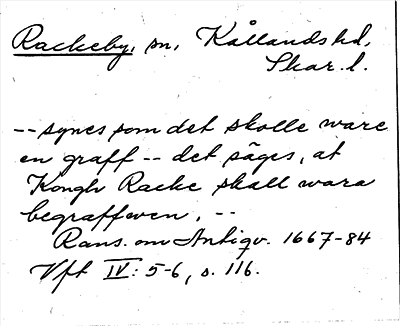 Rackeby, sn, Kållands hd,
Skar. l.
-- synes som det skolle ware
en graff -- det säges, at
Kongh Racke skall wara
begraffwen. --
Rans. om Antiqv. 1667-84
Vft IV: 5-6, s. 116.